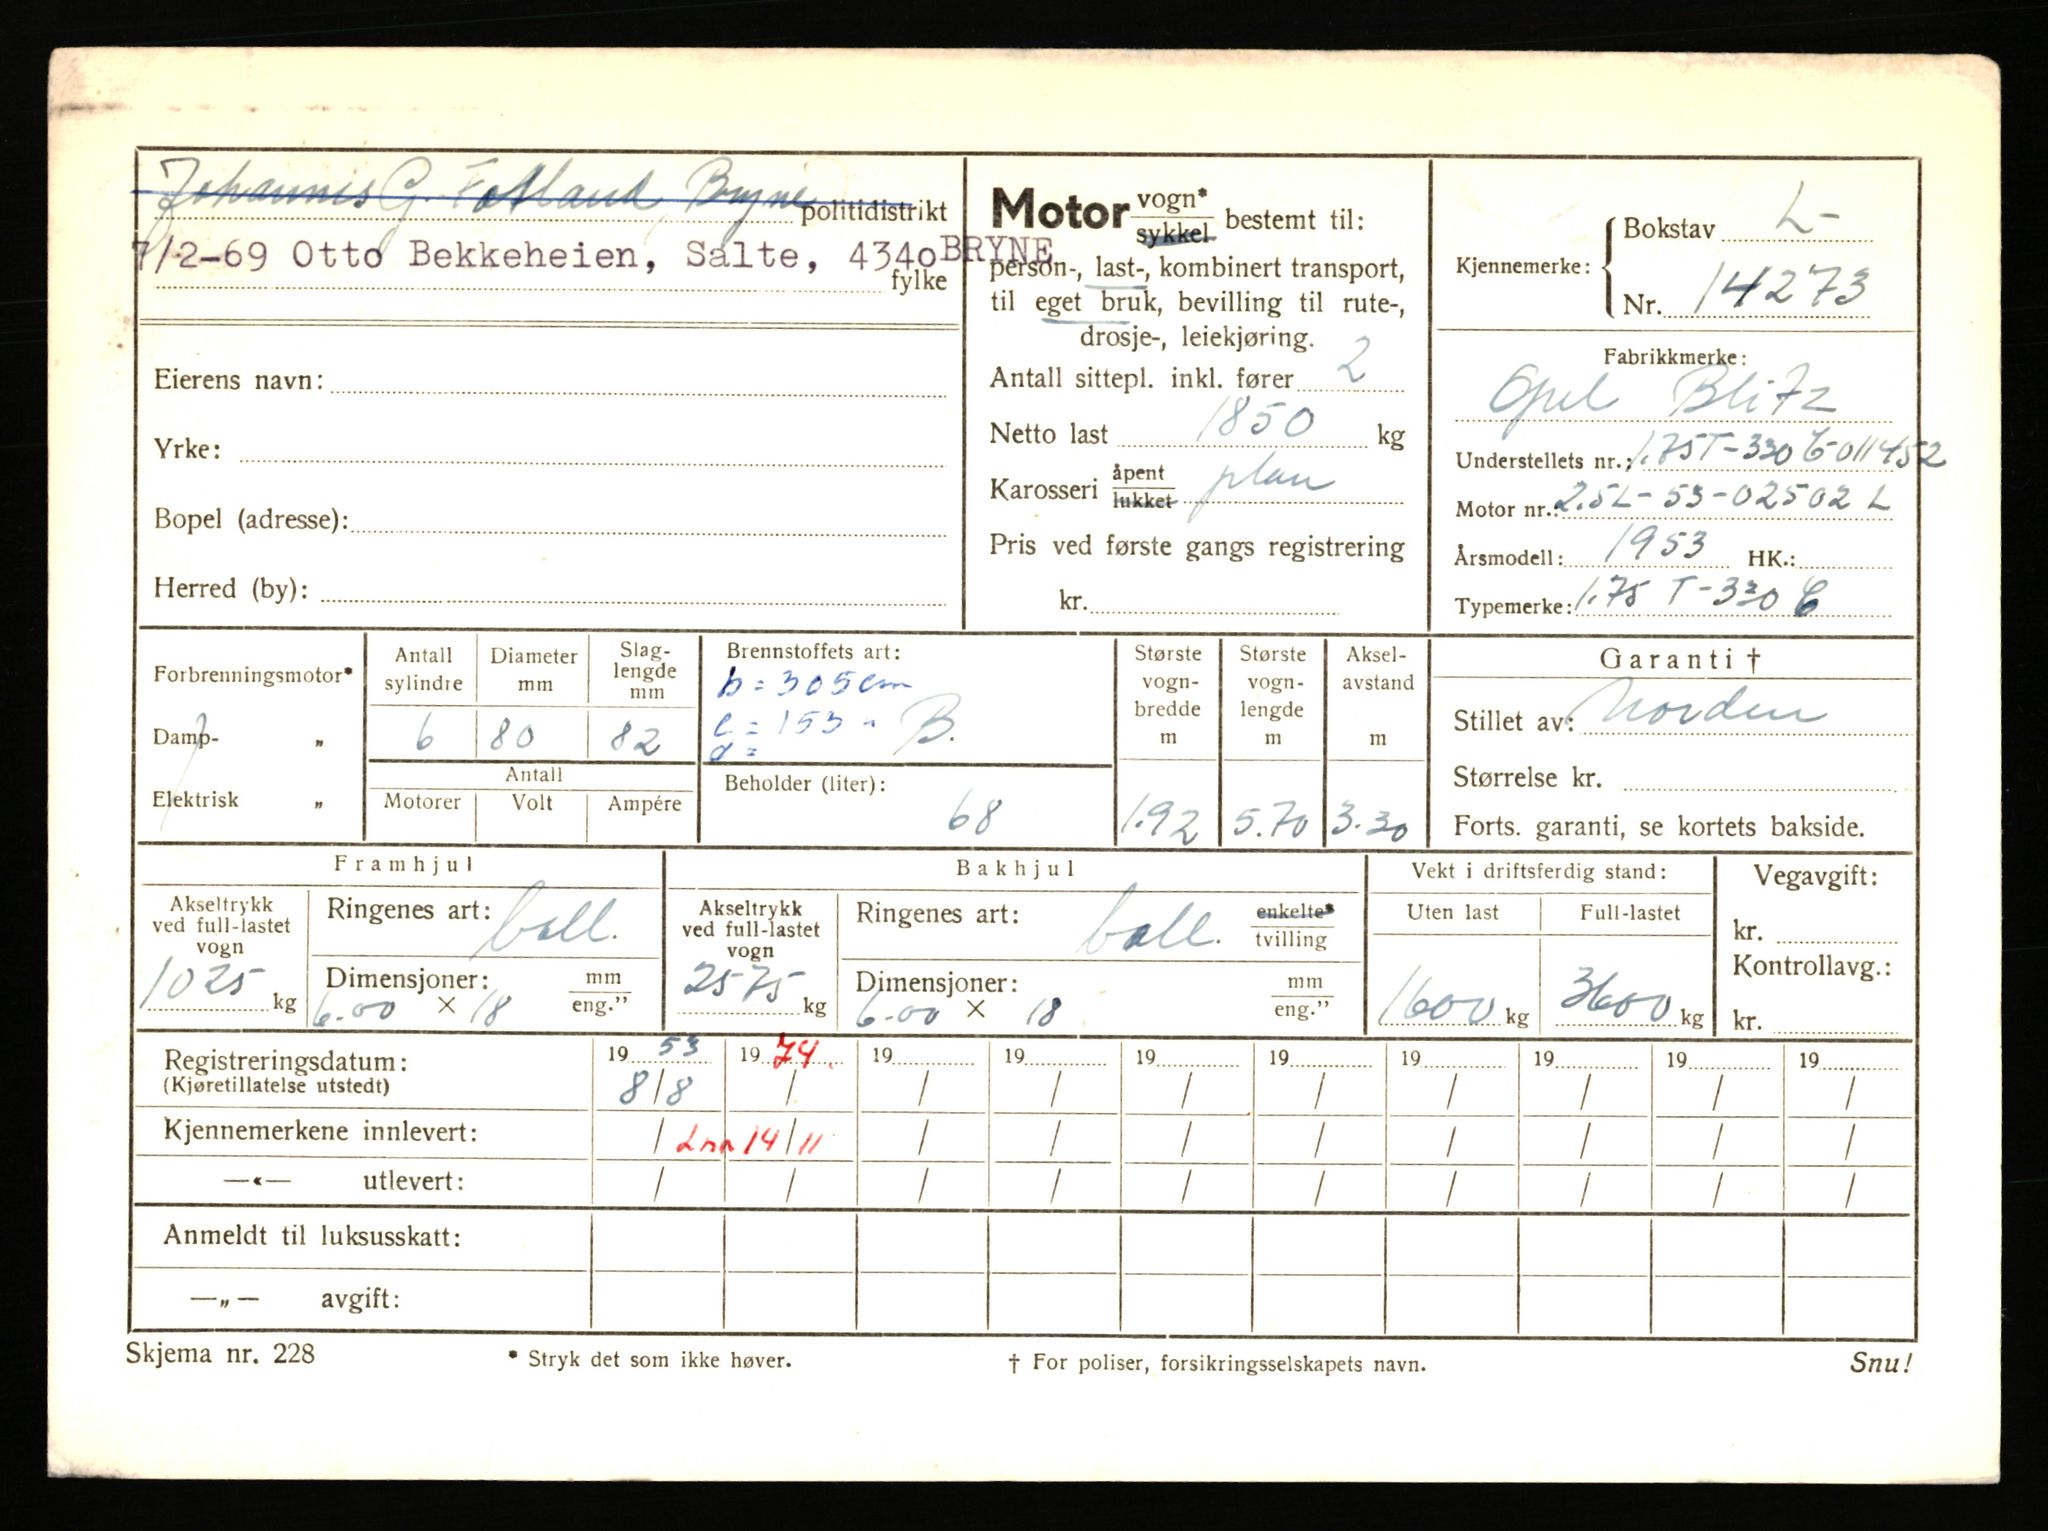 Johannes G. Fotland, Bryne politidistrikt
7/2-69 Otto Bekkeheien, Salte, 4340 BRYNE
fylke
Eierens navn:
Yrke:
Bopel (adresse):
Herred (by):
Motor vogn* sykkel bestemt til:
person-, last-, kombinert transport,
til eget bruk, bevilling til rute-,
drosje-, leiekjøring.
Antall sittepl. inkl. fører 2
Netto last 1850 kg
Karosseri åpent lukket plan
Pris ved første gangs registrering
kr.
Kjennemerke: Bokstav L-
Nr. 14273
Fabrikkmerke:
Opel Blitz
Understellets nr.: 1.75T-330 C-011452
Motor nr.: 2.5L-53-02502 L
Årsmodell: 1953 HK.:
Typemerke: 1.75 T-330 C
Forbrenningsmotor*
Damp- „
Elektrisk „
Antall sylindre Diameter mm Slag-lengde mm
6 80 82
Antall
Motorer Volt Ampére
Brennstoffets art:
b = 305 cm
c = 153 " B.
d =
Beholder (liter):
68
Største vogn-bredde m Største vogn-lengde m Aksel-avstand m
1.92 5.70 3.30
Garanti †
Stillet av: Norden
Størrelse kr.
Forts. garanti, se kortets bakside.
Framhjul
Akseltrykk ved full-lastet vogn
1025 kg
Ringenes art: ball.
Dimensjoner: mm eng.”
6.00 × 18
Bakhjul
Akseltrykk ved full-lastet vogn
2575 kg
Ringenes art: ball. enkelte* tvilling
Dimensjoner: mm eng.”
6.00 × 18
Vekt i driftsferdig stand:
Uten last Full-lastet
1600 kg 3600 kg
Vegavgift:
kr.
Kontrollavg.:
kr.
Registreringsdatum: 19 53 19 74. 19 19 19 19 19 19 19 19
(Kjøretillatelse utstedt) 8/8 / / / / / / / / /
Kjennemerkene innlevert: / Lnr 14/11 / / / / / / / /
—«— utlevert: / / / / / / / / / /
Anmeldt til luksusskatt:
—„— avgift:
Skjema nr. 228 * Stryk det som ikke høver. † For poliser, forsikringsselskapets navn. Snu!